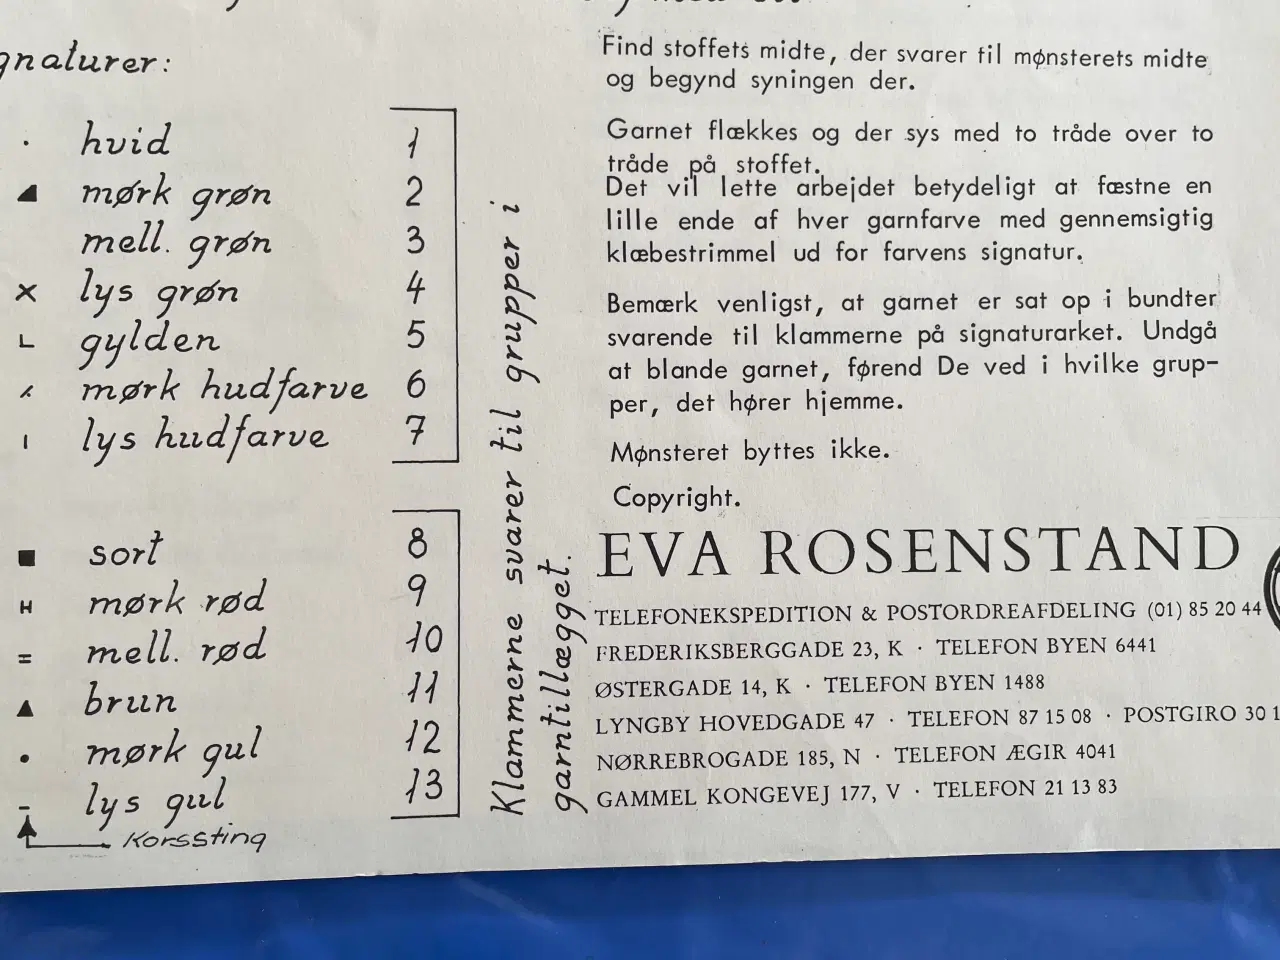 gnaturer:
· hvid 1
mørk grøn 2
mell. grøn 3
x lys grøn 4
L gylden 5
mørk hudfarve 6
ı lys hudfarve 7
■ sort 8
H mørk rød 9
= mell. rød 10
▲ brun 11
• mørk gul 12
– lys gul 13
Korssting
Klammerne svarer til grupper i
garntillægget.
Find stoffets midte, der svarer til mønsterets midte
og begynd syningen der.
Garnet flækkes og der sys med to tråde over to
tråde på stoffet.
Det vil lette arbejdet betydeligt at fæstne en
lille ende af hver garnfarve med gennemsigtig
klæbestrimmel ud for farvens signatur.
Bemærk venligst, at garnet er sat op i bundter
svarende til klammerne på signaturarket. Undgå
at blande garnet, førend De ved i hvilke grup-
per, det hører hjemme.
Mønsteret byttes ikke.
Copyright.
EVA ROSENSTAND
TELEFONEKSPEDITION & POSTORDREAFDELING (01) 85 20 44
FREDERIKSBERGGADE 23, K · TELEFON BYEN 6441
ØSTERGADE 14, K · TELEFON BYEN 1488
LYNGBY HOVEDGADE 47 · TELEFON 87 15 08 · POSTGIRO 30 1
NØRREBROGADE 185, N · TELEFON ÆGIR 4041
GAMMEL KONGEVEJ 177, V · TELEFON 21 13 83